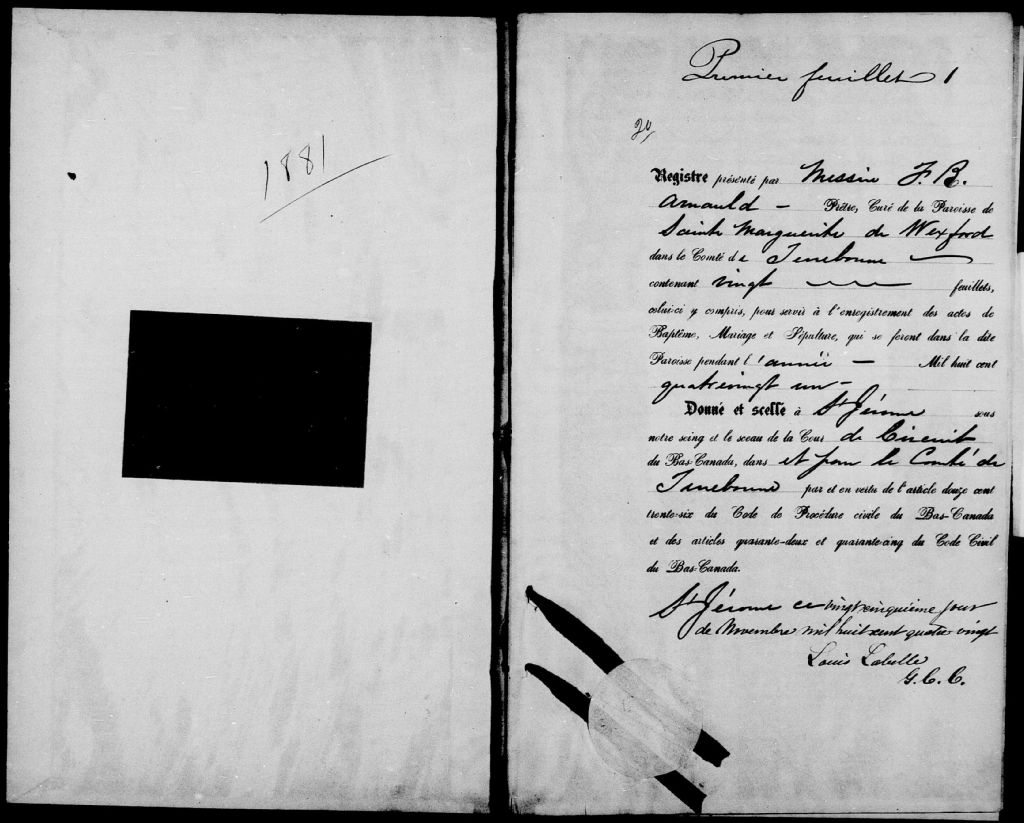 1881
Premier feuillet 1
Registre présenté par Messire F. B.
Arnauld — Prêtre, Curé de la Paroisse de
Sainte Marguerite de Wexford
dans le Comté de Terrebonne —
contenant vingt feuillets,
celui-ci y compris, pour servir à l'enregistrement des actes de
Baptême, Mariage et Sépulture, qui se feront dans la dite
Paroisse pendant l'année — Mil huit cent
quatrevingt un —
Donné et scellé à St Jérome sous
notre seing et le sceau de la Cour de Circuit
du Bas-Canada, dans et pour le Comté de
Terrebonne par et en vertu de l'article douze cent
trente-six du Code de Procédure civile du Bas-Canada
et des articles quarante-deux et quarante-cinq du Code Civil
du Bas-Canada.
St Jérome ce vingt cinquième jour
de Novembre mil huit cent quatre vingt
Louis Labelle
G. C. C.